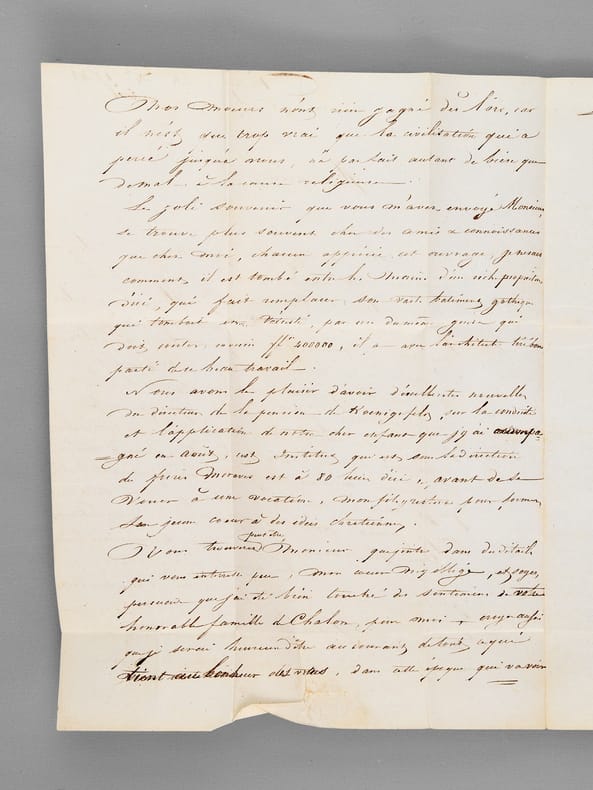 Nos moeurs n'ont rien gagné dès lors, car
il n'est que trop vrai que la civilisation qui a
percé jusqu'à nous, n'a pas fait autant de bien que
de mal à la cause religieuse.
Le joli souvenir que vous m'avez envoyé Monsieur,
se trouve plus souvent chez des amis & connaissances
que chez moi, chacun apprécie cet ouvrage, je ne sais
comment il est tombé entre les mains d'un riche propriétaire
d'ici, qui fait remplacer son vaste batiment gothique
qui tombait en vétusté, par un du même genre qui
doit couter environ fl. 400000, il a avec l'architecte
parti de ce beau travail.
Nous avons le plaisir d'avoir d'excellentes nouvelles
du directeur de la pension de Koenigsfeld, sur la conduite
et l'application de notre cher enfant que j'y ai accompa-
gné en août, cet Institut qui est sous la direction
de frères Moraves est à 80 lieues d'ici, avant de se
vouer à une vocation, mon fils y restera pour former
son jeune coeur à des idées chrétiennes.
Vous trouverez peut-être Monsieur que j'entre dans des détails
qui vous interesse peu, mon coeur m'y oblige, et soyez
persuadé que j'ai été bien touché des sentimens de votre
honorable famille de Chalon, pour moi, croyez aussi
que je serai heureux d'être au courant de tout ce qui
tient au bonheur des votres, dans cette époque qui va voir